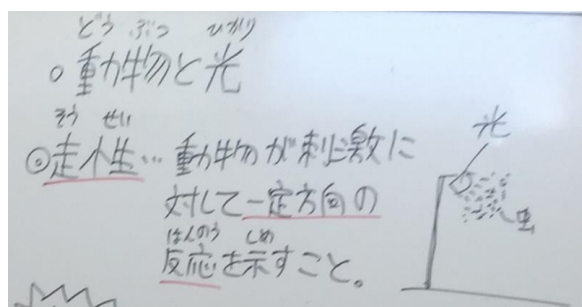 どうぶつ ひかり
○動物と光
そうせい
◎走性…動物が刺激に
対して一定方向の
はんのう しめ
反応を示すこと。
光
虫